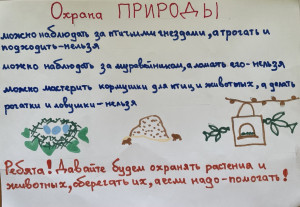 Охрана ПРИРОДЫ
можно наблюдать за птичьими гнездами, а трогать и
подходить-нельзя
можно наблюдать за муравейником, а ломать его-нельзя
можно мастерить кормушки для птиц и животных, а делать
рогатки и ловушки-нельзя
Ребята! Давайте будем охранять растения и
животных, оберегать их, а если надо-помогать!